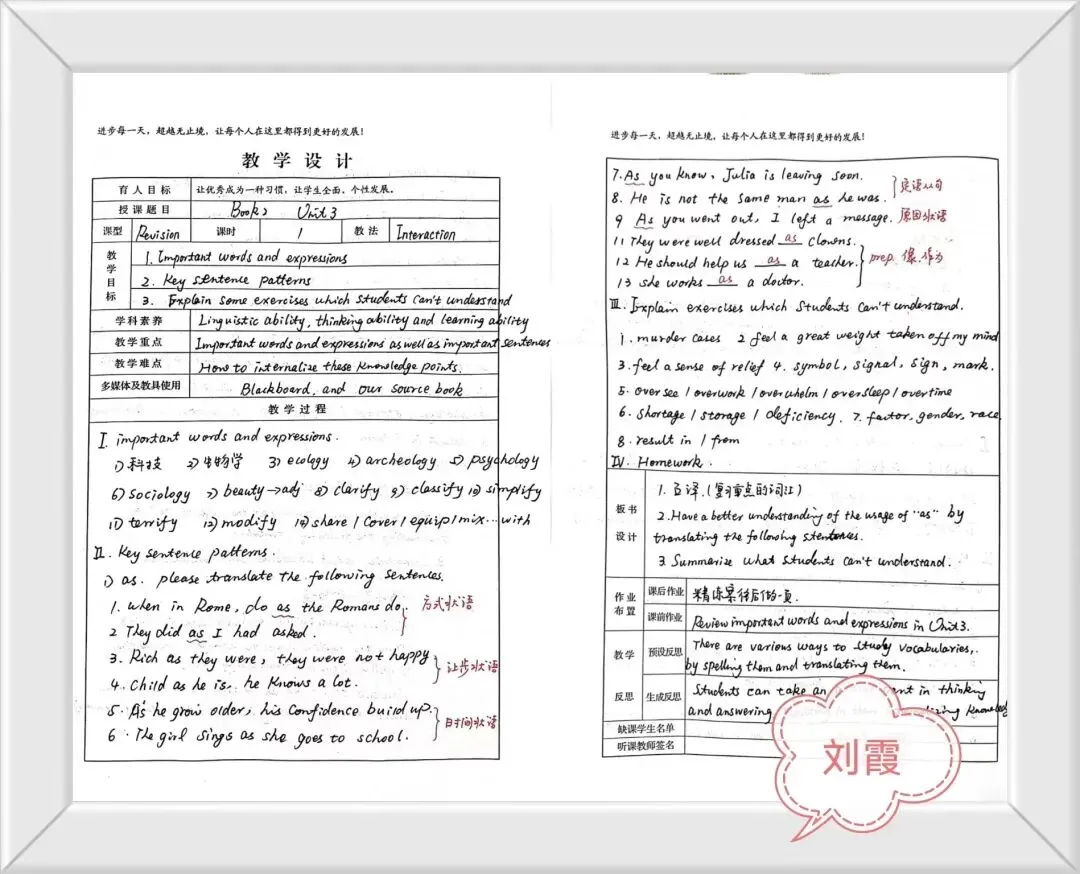 进步每一天，超越无止境，让每个人在这里都得到更好的发展！
教学设计
育人目标 让优秀成为一种习惯，让学生全面、个性发展。
授课题目 Book2 Unit3
课型 Revision 课时 1 教法 Interaction
教学目标
1. Important words and expressions
2. Key sentence patterns
3. Explain some exercises which students can't understand
学科素养 Linguistic ability, thinking ability and learning ability
教学重点 Important words and expressions as well as important sentences
教学难点 How to internalize these knowledge points.
多媒体及教具使用 Blackboard, and our source book
教学过程
I. important words and expressions.
1) 科技 2) 生物学 3) ecology 4) archeology 5) psychology
6) sociology 7) beauty→adj 8) clarify 9) classify 10) simplify
11) terrify 12) modify 14) share / cover / equip / mix... with
II. Key sentence patterns.
1) as. please translate the following sentences.
1. when in Rome, do as the Romans do.
方式状语
2 They did as I had asked.
3. Rich as they were, they were not happy
让步状语
4. Child as he is, he knows a lot.
5. As he grow older, his confidence build up.
时间状语
6. The girl sings as she goes to school.
进步每一天，超越无止境，让每个人在这里都得到更好的发展！
7. As you know, Julia is leaving soon.
定语从句
8. He is not the same man as he was.
9 As you went out, I left a message. 原因状语
11 They were well dressed as clowns.
12 He should help us as a teacher.
prep. 像，作为
13 she works as a doctor.
III. Explain exercises which students can't understand.
1. murder cases 2 feel a great weight taken off my mind
3. feel a sense of relief 4. symbol, signal, sign, mark.
5. oversee / overwork / overwhelm / oversleep / overtime
6. shortage / storage / deficiency. 7. factor, gender, race
8. result in / from
IV. Homework.
板书设计
1. 互译.(复习重点的词汇)
2. Have a better understanding of the usage of "as" by
translating the following stentences.
3. Summarize what students can't understand.
作业布置
课后作业 精练案待后做一页.
课前作业 Review important words and expressions in Unit3.
教学反思
预设反思 There are various ways to study vocabularies,
by spelling them and translating them.
生成反思 Students can take an in thinking
and answering knowledge
缺课学生名单
听课教师签名
刘霞